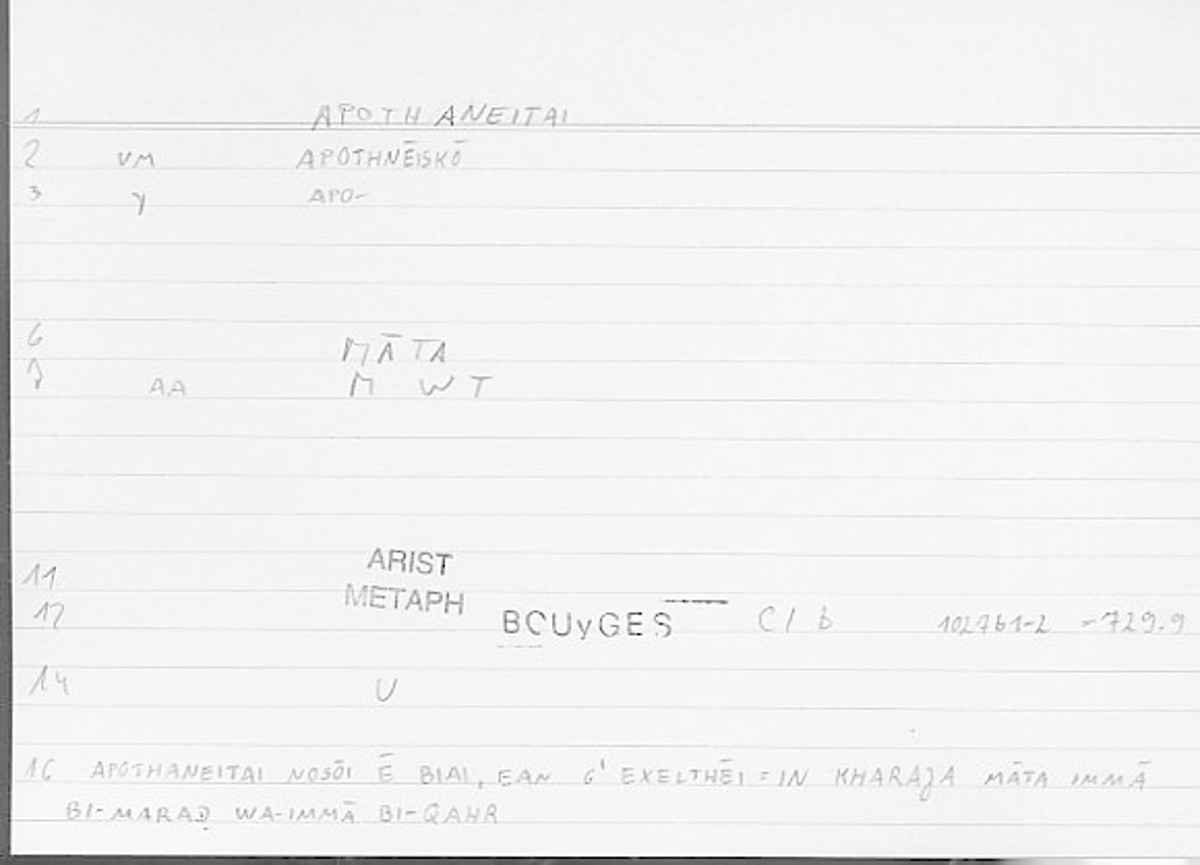 1 APOTHANEITAI
2 VM APOTHNĒISKŌ
3 γ APO-
6 MĀTA
7 AA M W T
11 ARIST
12 METAPH BOUYGES C/b 1027b1-2 =729.9
14 U
16 APOTHANEITAI NOSŌI Ē BIAI, EAN G' EXELTHĒI = IN KHARAJA MĀTA IMMĀ
BI-MARAḌ WA-IMMĀ BI-QAHR